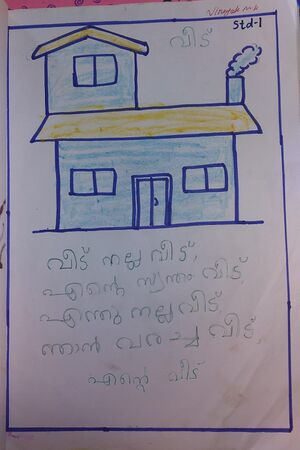 Vinayak M.K
Std-1
വീട്
വീട് നല്ല വീട്,
എന്റെ സ്വന്തം വീട്,
എന്തു നല്ല വീട്,
ഞാൻ വരച്ച വീട്,
എന്റെ വീട്